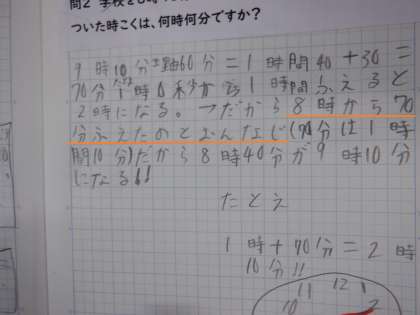 ついた時こくは、何時何分ですか？
9時10分 60分＝1時間40＋30＝
70分 1時 0 から1時間ふえると
2時になる。→だから8時から70
分ふえたのとおんなじ(70分は1時
間10分)だから8時40分が9時10分
になる!!
たとえ
1時＋70分＝2時
10分!!
11 12 1
10 2